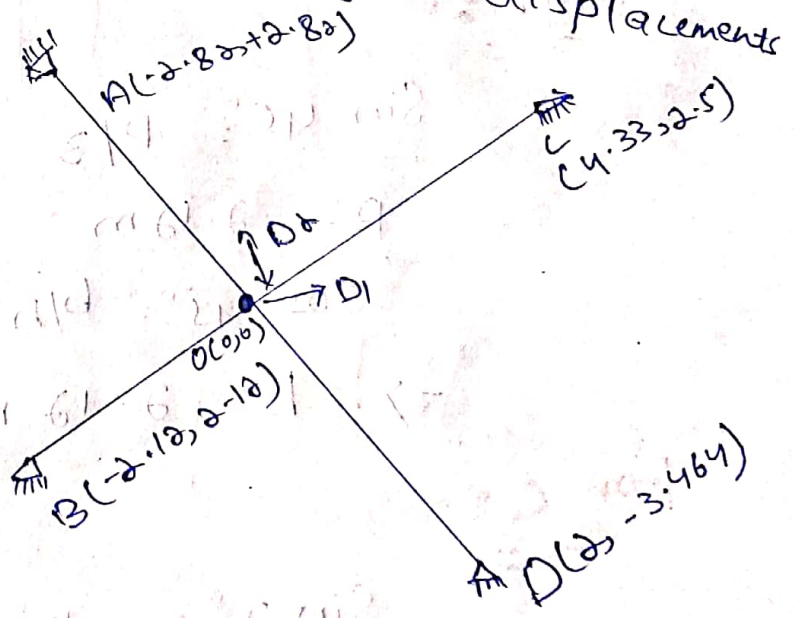 displacements
A(-2.82,+2.82)
C
(4.33,2.5)
D2
D1
O(0,0)
B(-2.12,2-12)
D(2,-3.464)